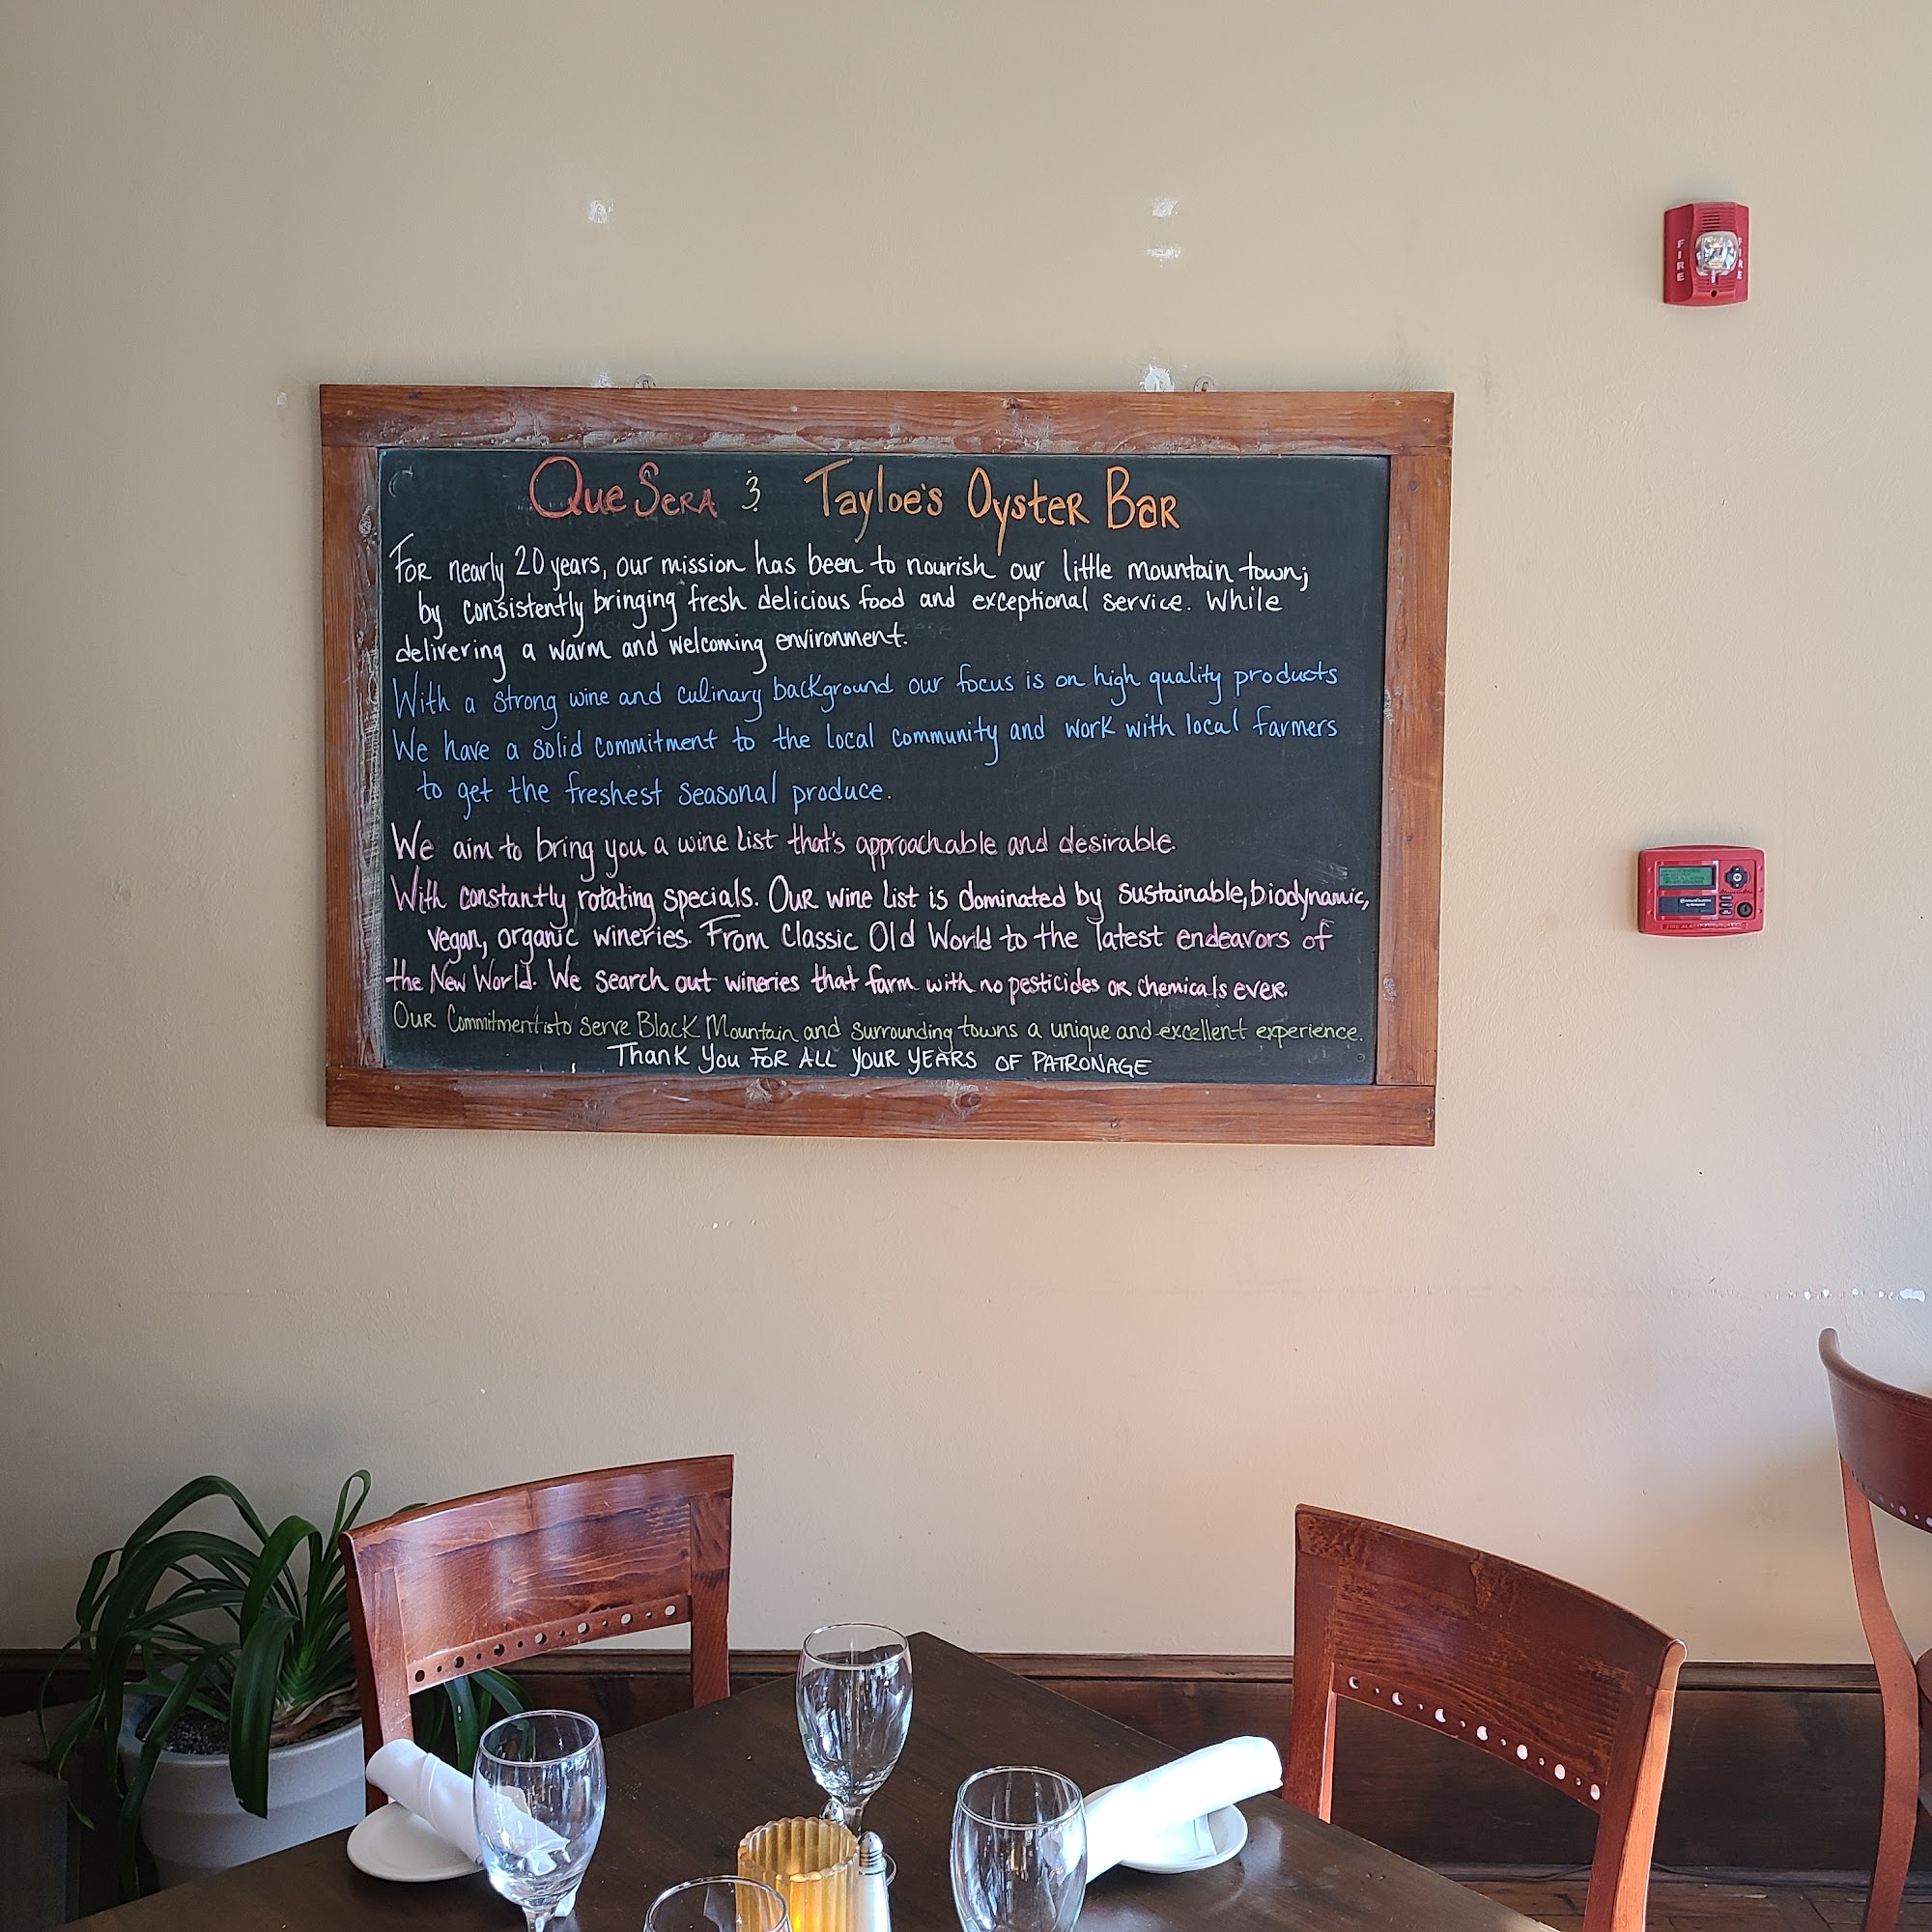 Que Sera & Tayloe's Oyster Bar
For nearly 20 years, our mission has been to nourish our little mountain town;
by consistently bringing fresh delicious food and exceptional service. While
delivering a warm and welcoming environment.
With a strong wine and culinary background our focus is on high quality products
We have a solid commitment to the local community and work with local farmers
to get the freshest seasonal produce.
We aim to bring you a wine list that's approachable and desirable.
With constantly rotating specials. Our wine list is dominated by sustainable, biodynamic,
vegan, organic wineries. From Classic Old World to the latest endeavors of
the New World. We search out wineries that farm with no pesticides or chemicals ever.
Our Commitment is to serve Black Mountain and surrounding towns a unique and excellent experience.
Thank You For All Your Years of Patronage
FIRE
FIRE